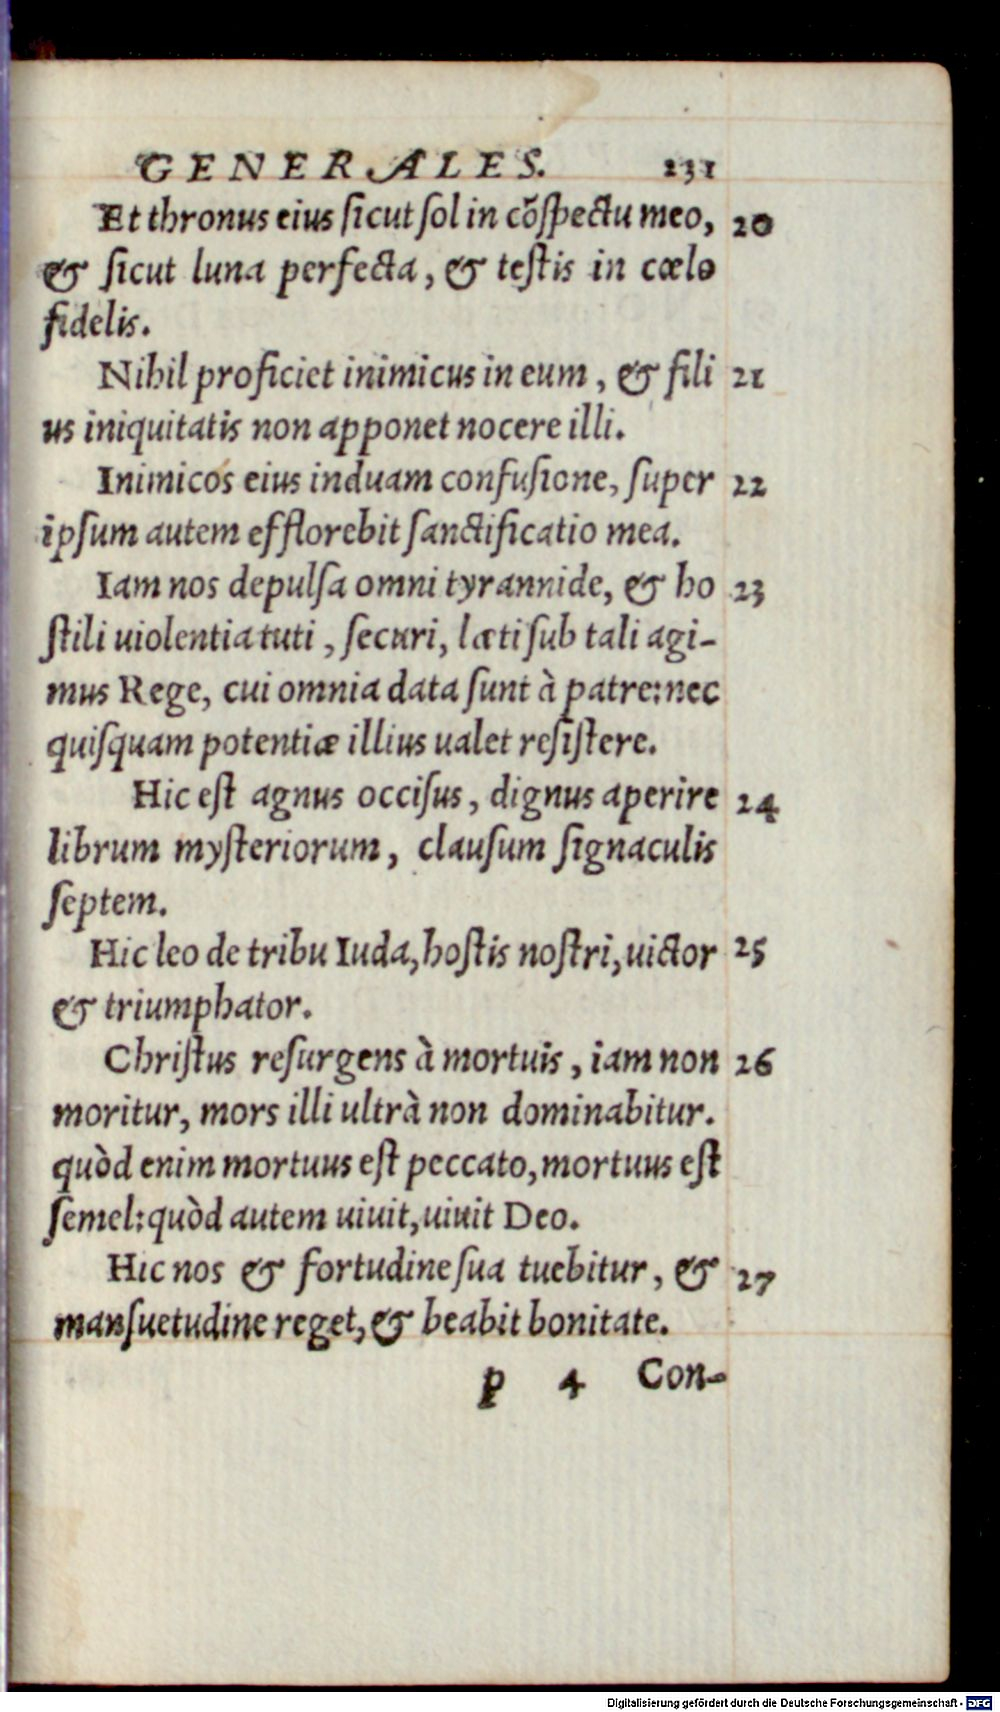 GENERALES. 231
Et thronus eius ſicut ſol in cõſpectu meo, 20
& ſicut luna perfecta, & teſtis in cœlo
fidelis.
Nihil proficiet inimicus in eum, & fili 21
us iniquitatis non apponet nocere illi.
Inimicos eius induam confuſione, ſuper 22
ipſum autem efflorebit ſanctificatio mea.
Iam nos depulſa omni tyrannide, & ho 23
ſtili uiolentia tuti, ſecuri, læti ſub tali agi-
mus Rege, cui omnia data ſunt à patre: nec
quiſquam potentiæ illius ualet reſiſtere.
Hic eſt agnus occiſus, dignus aperire 24
librum myſteriorum, clauſum ſignaculis
ſeptem.
Hic leo de tribu Iuda, hoſtis noſtri, uictor 25
& triumphator.
Chriſtus reſurgens à mortuis, iam non 26
moritur, mors illi ultrà non dominabitur.
quòd enim mortuus eſt peccato, mortuus eſt
ſemel: quòd autem uiuit, uiuit Deo.
Hic nos & fortudine ſua tuebitur, & 27
manſuetudine reget, & beabit bonitate.
p 4 Con-
Digitalisierung gefördert durch die Deutsche Forschungsgemeinschaft - DFG